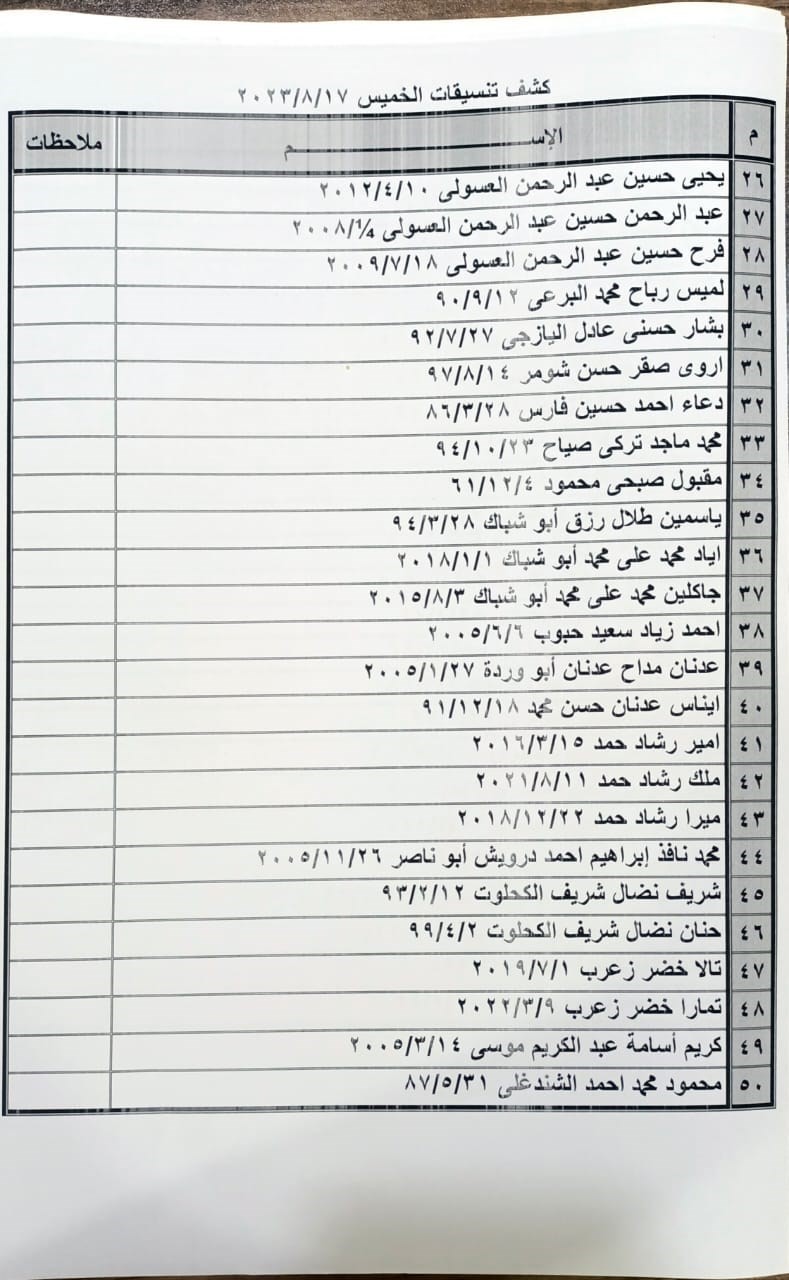 كشف تنسيقات الخميس ٢٠٢٣/٨/١٧
م الإســـم ملاحظات
٢٦ يحيى حسين عبد الرحمن العسولى ٢٠١٢/٤/١٠
٢٧ عبد الرحمن حسين عبد الرحمن العسولى ٢٠٠٨/¼
٢٨ فرح حسين عبد الرحمن العسولى ٢٠٠٩/٧/١٨
٢٩ لميس رباح محمد البرعى ٩٠/٩/١٢
٣٠ بشار حسنى عادل اليازجى ٩٢/٧/٢٧
٣١ اروى صقر حسن شومر ٩٧/٨/١٤
٣٢ دعاء احمد حسين فارس ٨٦/٣/٢٨
٣٣ محمد ماجد تركى صياح ٩٤/١٠/٢٣
٣٤ مقبول صبحى محمود ٦١/١٢/٤
٣٥ ياسمين طلال رزق أبو شباك ٩٤/٣/٢٨
٣٦ اياد محمد على محمد أبو شباك ٢٠١٨/١/١
٣٧ جاكلين محمد على محمد أبو شباك ٢٠١٥/٨/٣
٣٨ احمد زياد سعيد حبوب ٢٠٠٥/٦/٦
٣٩ عدنان مداح عدنان أبو وردة ٢٠٠٥/١/٢٧
٤٠ ايناس عدنان حسن محمد ٩١/١٢/١٨
٤١ امير رشاد حمد ٢٠١٦/٣/١٥
٤٢ ملك رشاد حمد ٢٠٢١/٨/١١
٤٣ ميرا رشاد حمد ٢٠١٨/١٢/٢٢
٤٤ محمد نافذ إبراهيم احمد درويش أبو ناصر ٢٠٠٥/١١/٢٦
٤٥ شريف نضال شريف الكحلوت ٩٣/٢/١٢
٤٦ حنان نضال شريف الكحلوت ٩٩/٤/٢
٤٧ تالا خضر زعرب ٢٠١٩/٧/١
٤٨ تمارا خضر زعرب ٢٠٢٢/٣/٩
٤٩ كريم أسامة عبد الكريم موسى ٢٠٠٥/٣/١٤
٥٠ محمود محمد احمد الشندغلى ٨٧/٥/٣١